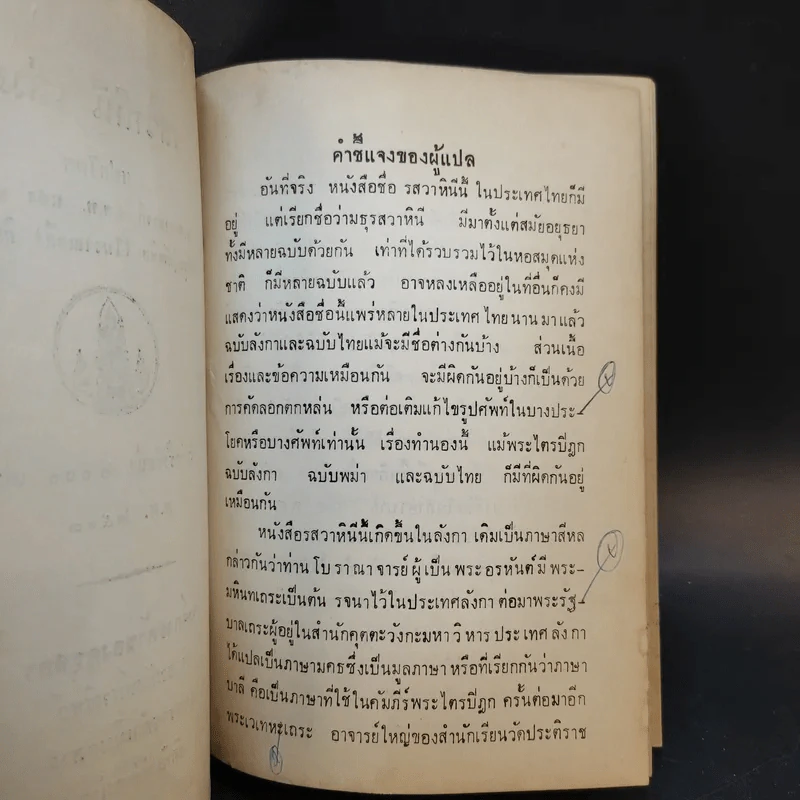 คำชี้แจงของผู้แปล
อันที่จริง หนังสือชื่อ รสวาหินีนี้ ในประเทศไทยก็มี
อยู่ แต่เรียกชื่อว่ามธุรสวาหินี มีมาตั้งแต่สมัยอยุธยา
ทั้งมีหลายฉบับด้วยกัน เท่าที่ได้รวบรวมไว้ในหอสมุดแห่ง
ชาติ ก็มีหลายฉบับแล้ว อาจหลงเหลืออยู่ในที่อื่นก็คงมี
แสดงว่าหนังสือชื่อนี้แพร่หลายในประเทศไทยนานมาแล้ว
ฉบับลังกาและฉบับไทยแม้จะมีชื่อต่างกันบ้าง ส่วนเนื้อ
เรื่องและข้อความเหมือนกัน จะมีผิดกันอยู่บ้างก็เป็นด้วย
การคัดลอกตกหล่น หรือต่อเติมแก้ไขรูปศัพท์ในบางประ–
โยคหรือบางศัพท์เท่านั้น เรื่องทำนองนี้ แม้พระไตรปิฎก
ฉบับลังกา ฉบับพม่า และฉบับไทย ก็มีที่ผิดกันอยู่
เหมือนกัน
หนังสือรสวาหินีนี้เกิดขึ้นในลังกา เดิมเป็นภาษาสีหล
กล่าวกันว่าท่านโบราณาจารย์ผู้เป็นพระอรหันต์มีพระ–
มหินทเถระเป็นต้น รจนาไว้ในประเทศลังกา ต่อมาพระรัฐ–
บาลเถระผู้อยู่ในสำนักคุตตะวังกะมหาวิหารประเทศลังกา
ได้แปลเป็นภาษามคธซึ่งเป็นมูลภาษา หรือที่เรียกกันว่าภาษา
บาลี คือเป็นภาษาที่ใช้ในคัมภีร์พระไตรปิฎก ครั้นต่อมาอีก
พระเวเทหะเถระ อาจารย์ใหญ่ของสำนักเรียนวัดประติราช